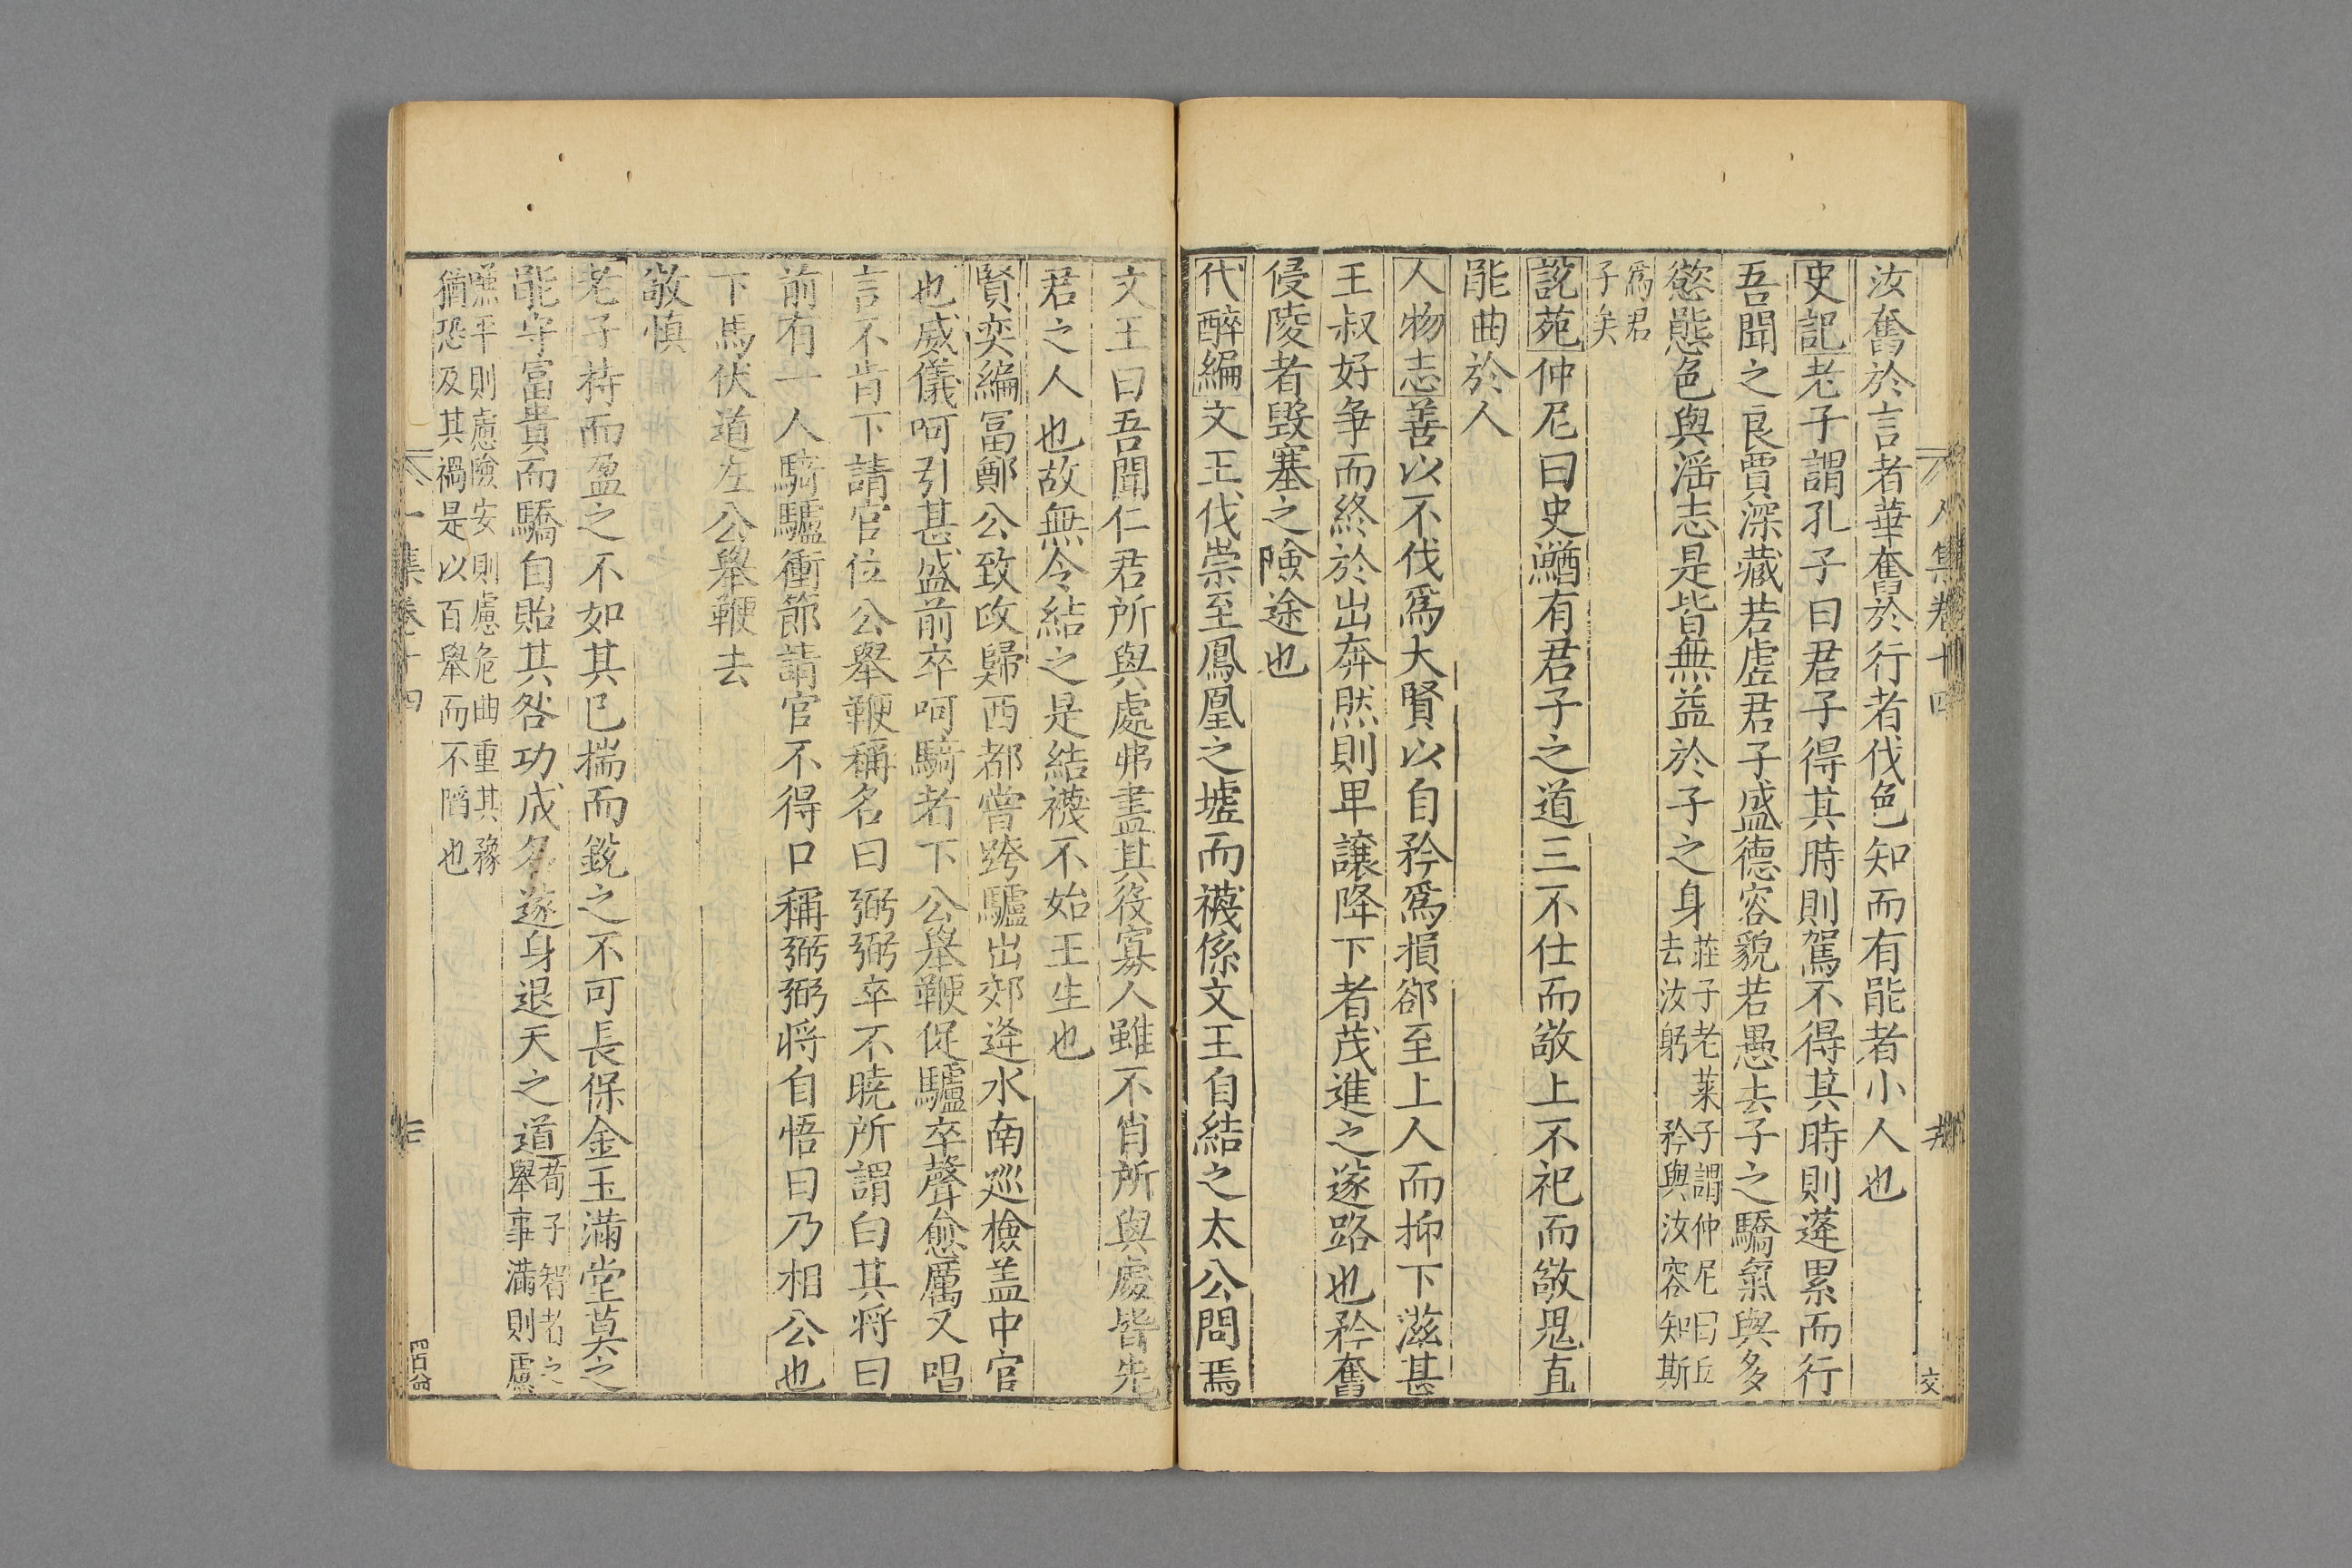 汝奮於言者華奮於行者伐色知而有能者小人也
史記老子謂孔子曰君子得其時則駕不得其時則蓬累而行
吾聞之良賈深藏若虛君子盛德容貌若愚去子之驕氣與多
慾態色與淫志是皆無益於子之身莊子老萊子謂仲尼曰丘去汝躬矜與汝容知斯
為君子矣
說苑仲尼曰史鰌有君子之道三不仕而敬上不祀而敬鬼直
能曲於人
人物志善以不伐爲大賢以自矜爲損郤至上人而抑下滋甚
王叔好争而終於出奔然則卑讓降下者茂進之遂路也矜奮
侵陵者毀塞之險途也
代醉編文王伐崇至鳳凰之墟而襪係文王自結之太公問焉
文王曰吾聞仁君所與處弗盡其役寡人雖不肖所與處皆先
君之人也故無令結之是結襪不始王生也
賢奕編冨鄭公致政歸西都嘗跨驢出郊逄水南巡檢盖中官
也威儀呵引甚盛前卒呵騎者下公舉鞭促驢卒聲愈厲又唱
言不肯下請官位公舉鞭稱名曰弼弼卒不曉所謂白其将曰
前有一人騎驢衝節請官不得口稱弼弼将自悟曰乃相公也
下馬伏道左公舉鞭去
敬慎
老子持而盈之不如其已揣而銳之不可長保金玉滿堂莫之
能守富貴而驕自貽其咎功成名遂身退天之道荀子智者之舉事滿則慮
嗛平則慮險安則慮危曲重其豫
猶恐及其禍是以百舉而不陷也
集卷十四